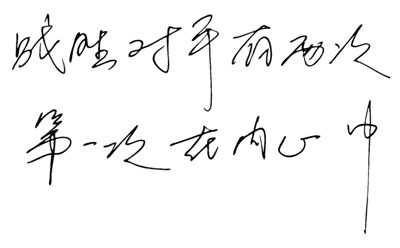 战胜对手有两次
第一次在内心中